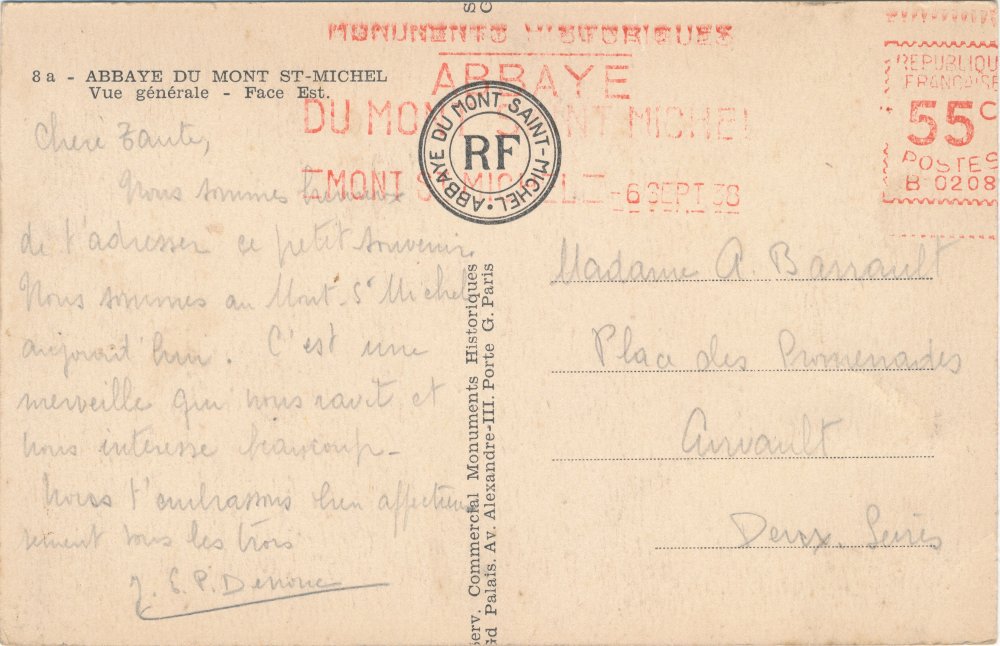 8 a - ABBAYE DU MONT ST-MICHEL
Vue générale - Face Est.
MONUMENTS HISTORIQUES
ABBAYE
DU MONT SAINT MICHEL
LE MONT St MICHEL LE - 6 SEPT 38
ABBAYE DU MONT SAINT-MICHEL
RF
REPUBLIQUE
FRANCAISE
55c
POSTES
B-0208
Chère Tante,
Nous sommes heureux
de t'adresser ce petit souvenir.
Nous sommes au Mont St Michel
aujourd'hui. C'est une
merveille qui nous ravit et
nous intéresse beaucoup -
Nous t'embrassons bien affectueu
sement tous les trois
Serv. Commercial Monuments Historiques
Gd Palais. Av. Alexandre-III. Porte G. Paris
Madame A. Barrault
Place des Promenades
Airvault
Deux-Sèvres